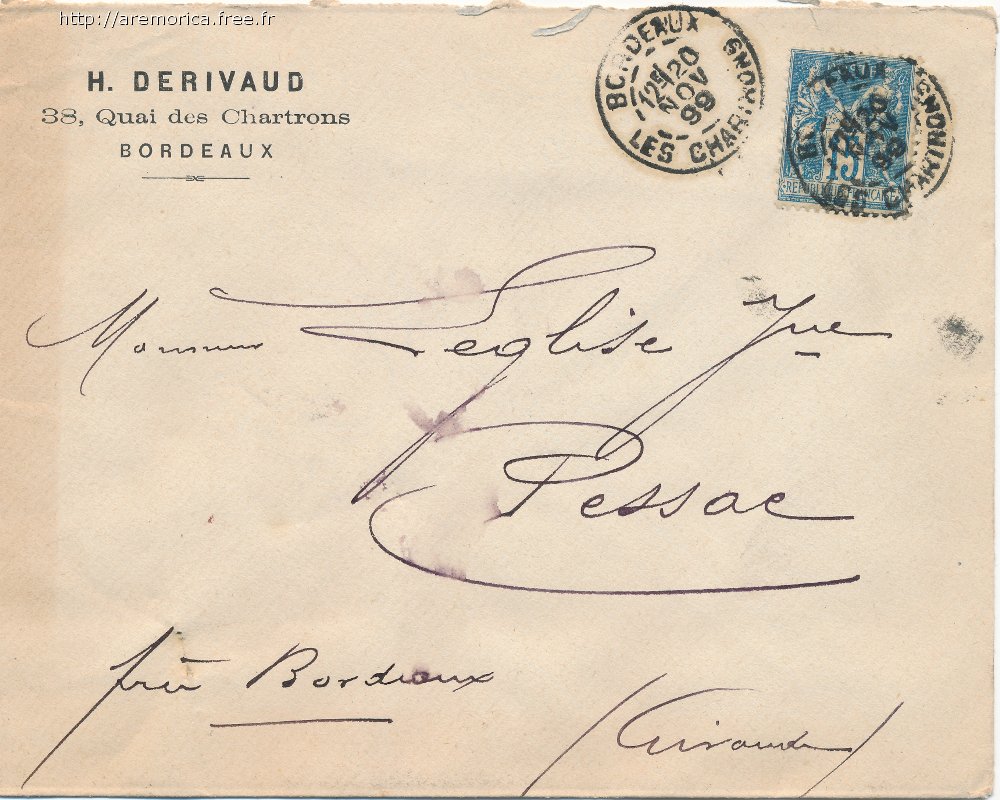 http://aremorica.free.fr
H. DERIVAUD
38, Quai des Chartrons
BORDEAUX
BORDEAUX
12E/20
NOV
99
LES CHARTRONS
15
REPUBLIQUE FRANÇAISE
Monsieur Leglise Jne
Pessac
près Bordeaux
(Gironde)